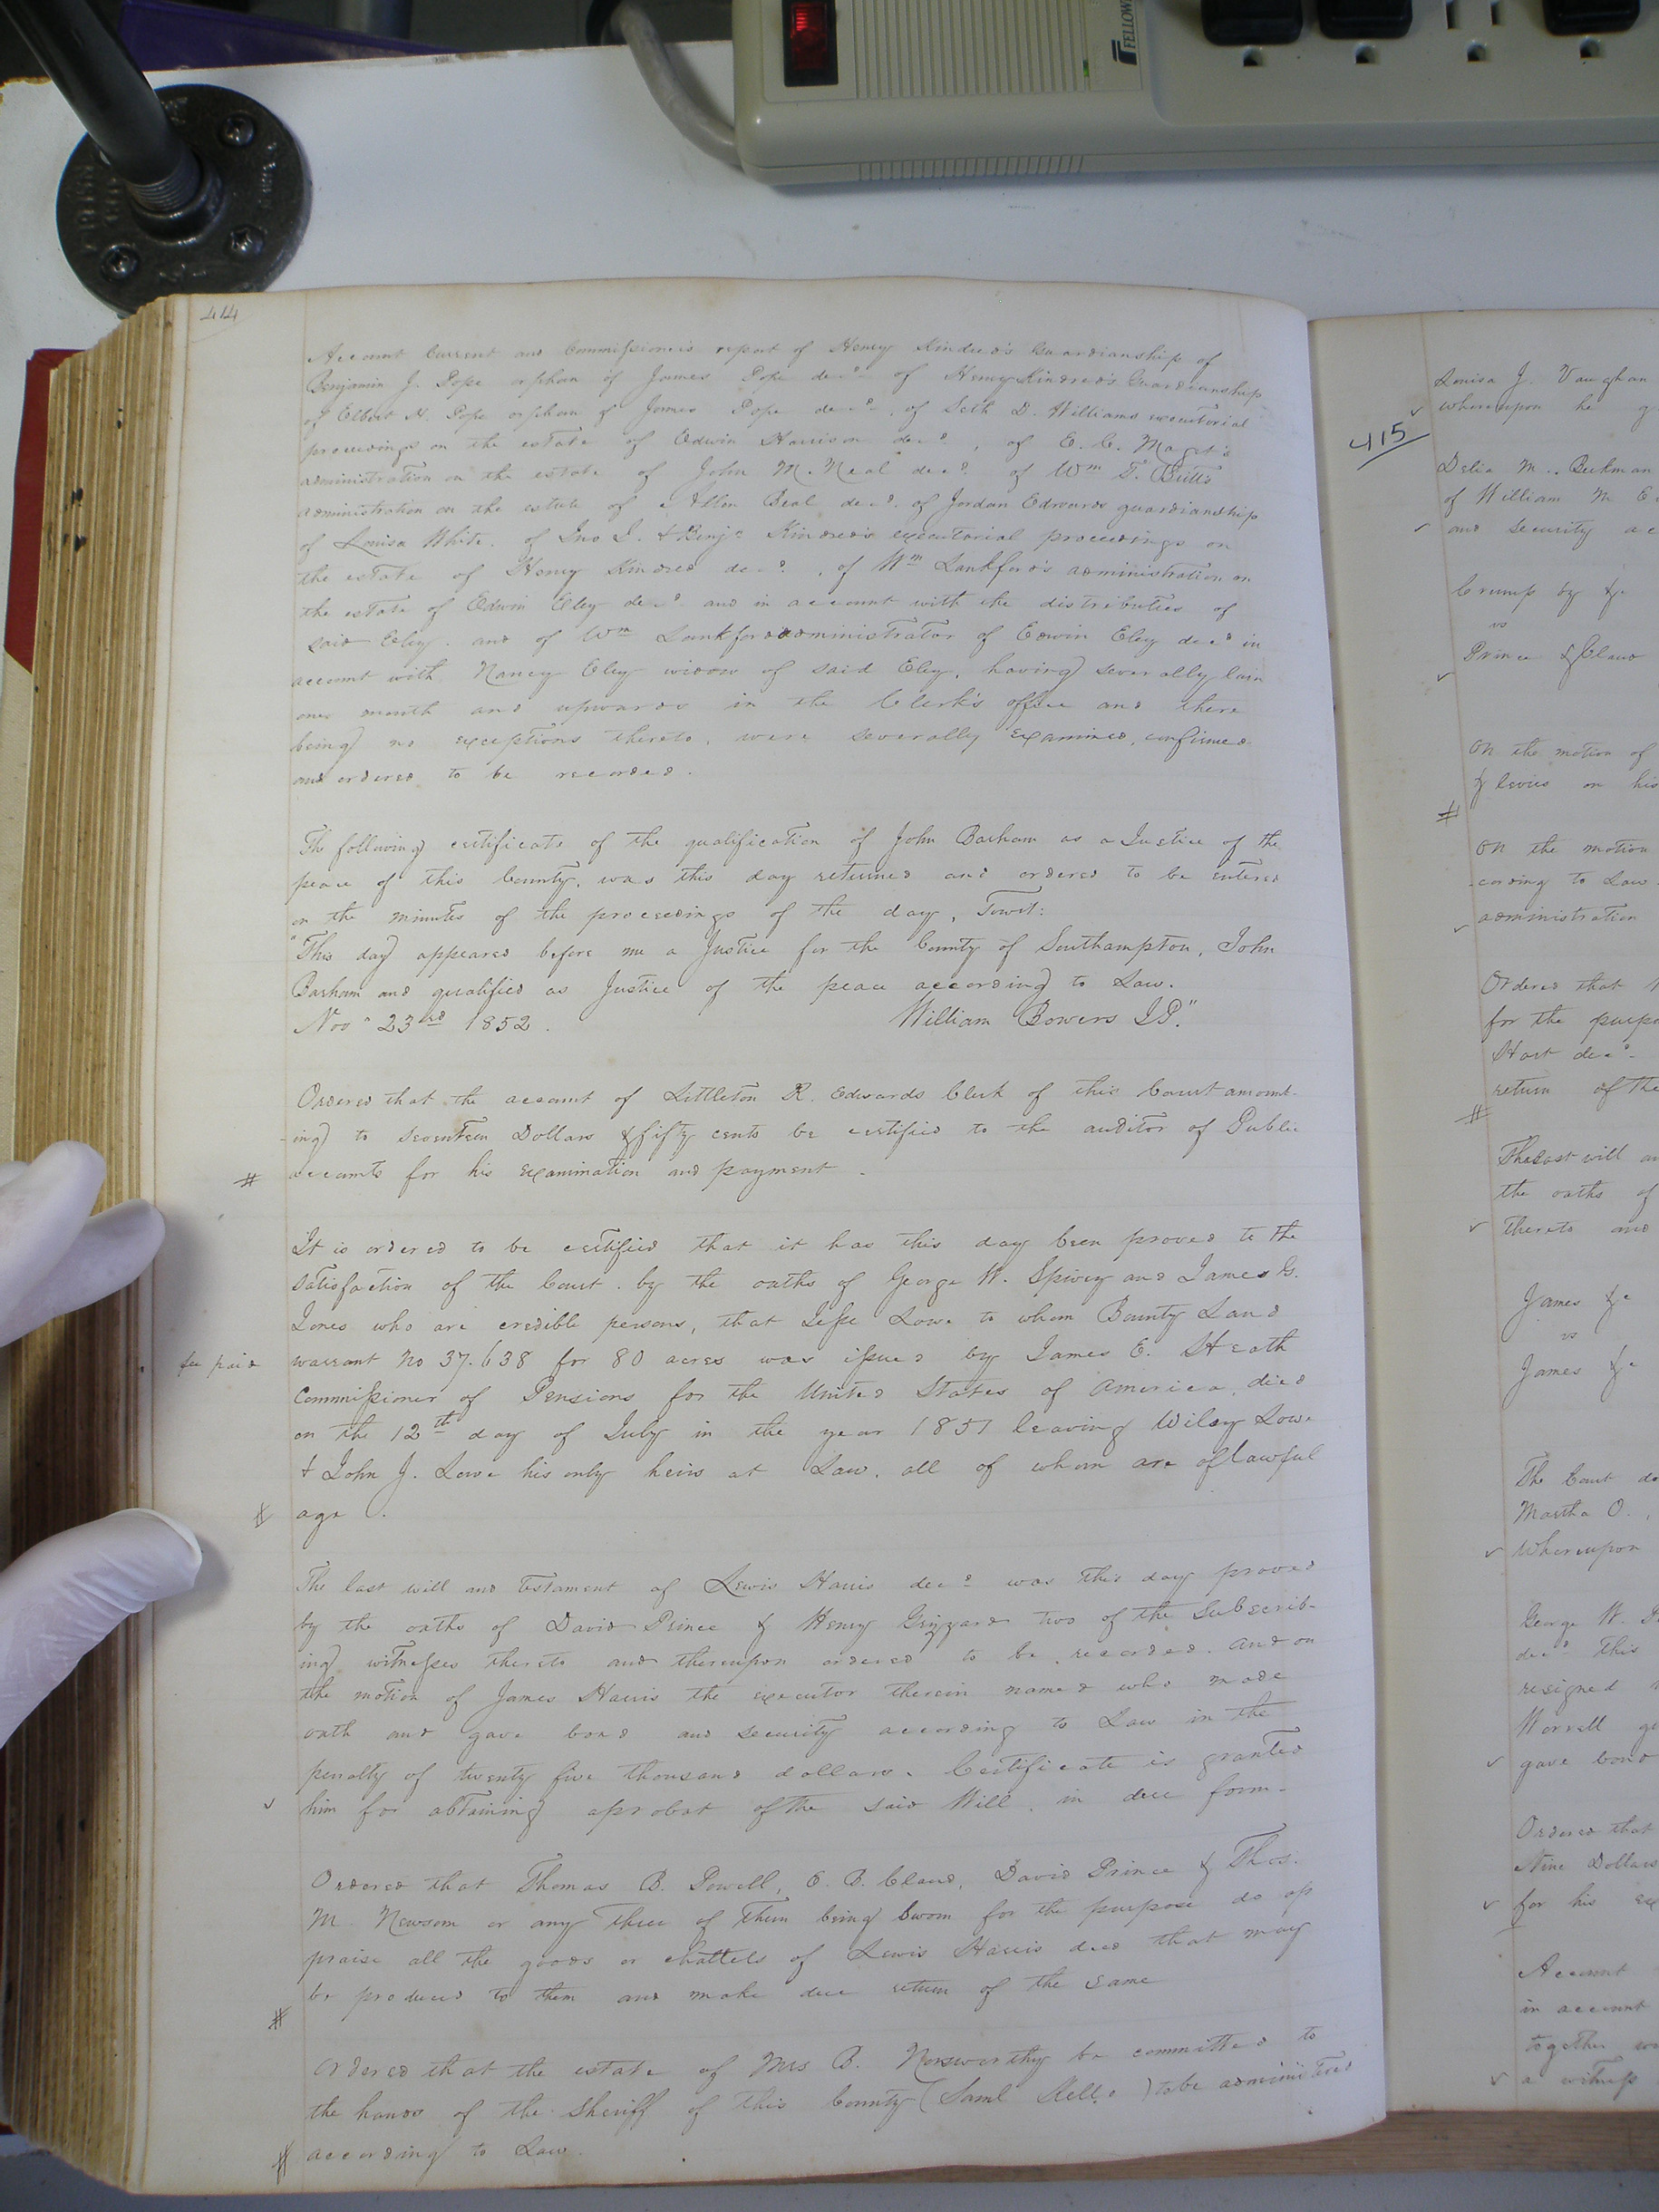 FELLOW
414
Account Current and Commissioner's report of Henry Kindred's Guardianship of
Benjamin J. Pope orphan of James Pope decd. of Henry Kindred's Guardianship
of Elbert H. Pope orphan of James Pope decd., of Seth D. Williams executorial
proceedings on the estate of Edwin Harrison decd., of E. C.
administration on the estate of John M. Neal decd. of Wm T. Butts
administration on the estate of Allen Beal decd. of Jordan Edwards guardianship
of Louisa White. of Jno J. & Benja Kindred's executorial proceedings on
the estate of Henry Kindred decd., of Wm Lankford's administration on
the estate of Edwin Eley decd. and in account with the distributees of
said Eley. and of Wm Lankford administrator of Edwin Eley decd in
account with Nancy Eley widow of said Eley, having severally lain
one month and upwards in the Clerk's office and there
being no exceptions thereto, were severally examined, confirmed
and ordered to be recorded.
The following certificate of the qualification of John Barham as a Justice of the
peace of this County, was this day returned and ordered to be entered
on the minutes of the proceedings of the day, Towit:
"This day appeared before me a Justice for the County of Southampton, John
Barham and qualified as Justice of the peace according to Law.
Nov" 23rd 1852. William Bowers J.P."
Ordered that the account of Littleton R. Edwards Clerk of this Court amount-
-ing to seventeen Dollars & fifty cents be certified to the auditor of Public
# accounts for his examination and payment.
It is ordered to be certified that it has this day been proved to the
satisfaction of the Court. by the oaths of George W. Spivey and James G.
Jones who are credible persons, that Jesse Lowe to whom Bounty Land
fee paid warrant No 37.638 for 80 acres was issued by James E. Heath
Commissioner of Pensions for the United States of America, died
on the 12th day of July in the year 1851 leaving Wiley Lowe
& John J. Lowe his only heirs at Law, all of whom are of lawful
# age.
The last will and testament of Lewis Harris decd was this day proved
by the oaths of David Prince & Henry Grizzard two of the Subscrib-
ing witnesses thereto and thereupon ordered to be recorded. And on
the motion of James Harris the executor therein named who made
oath and gave bond and security according to Law in the
penalty of twenty five thousand dollars. Certificate is granted
✓ him for obtaining a probat of the said Will. in due form-
Ordered that Thomas B. Powell, E. B. Claud, David Prince & Thos.
M Newsom or any three of them being sworn for the purpose do ap
praise all the goods or chattels of Lewis Harris decd that may
be produced to them and make due return of the same
#
Ordered that the estate of Mrs B. Norsworthy be committed to
the hands of the Sheriff of this County (Saml Kello) to be administered
# according to Law.
415
Louisa J. Vaughan
✓ whereupon he g
Delia M. Beekman
of William M E
✓ and security ac
Crump by &c
vs
✓ Prince & Claud
On the motion of
& levies on his
#
On the motion
-cording to Law
✓ administration
Ordered that
for the purpo
Hart decd-
return of the
#
The last will an
the oaths of
✓ thereto and
James &c
vs
James &c
The Court do
Martha O.
✓ Whereupon
George W.
decd this
resigned
Worrell
✓ gave bond
Ordered that
Nine Dollars
✓ for his ex
Account
in account
together
✓ a witness